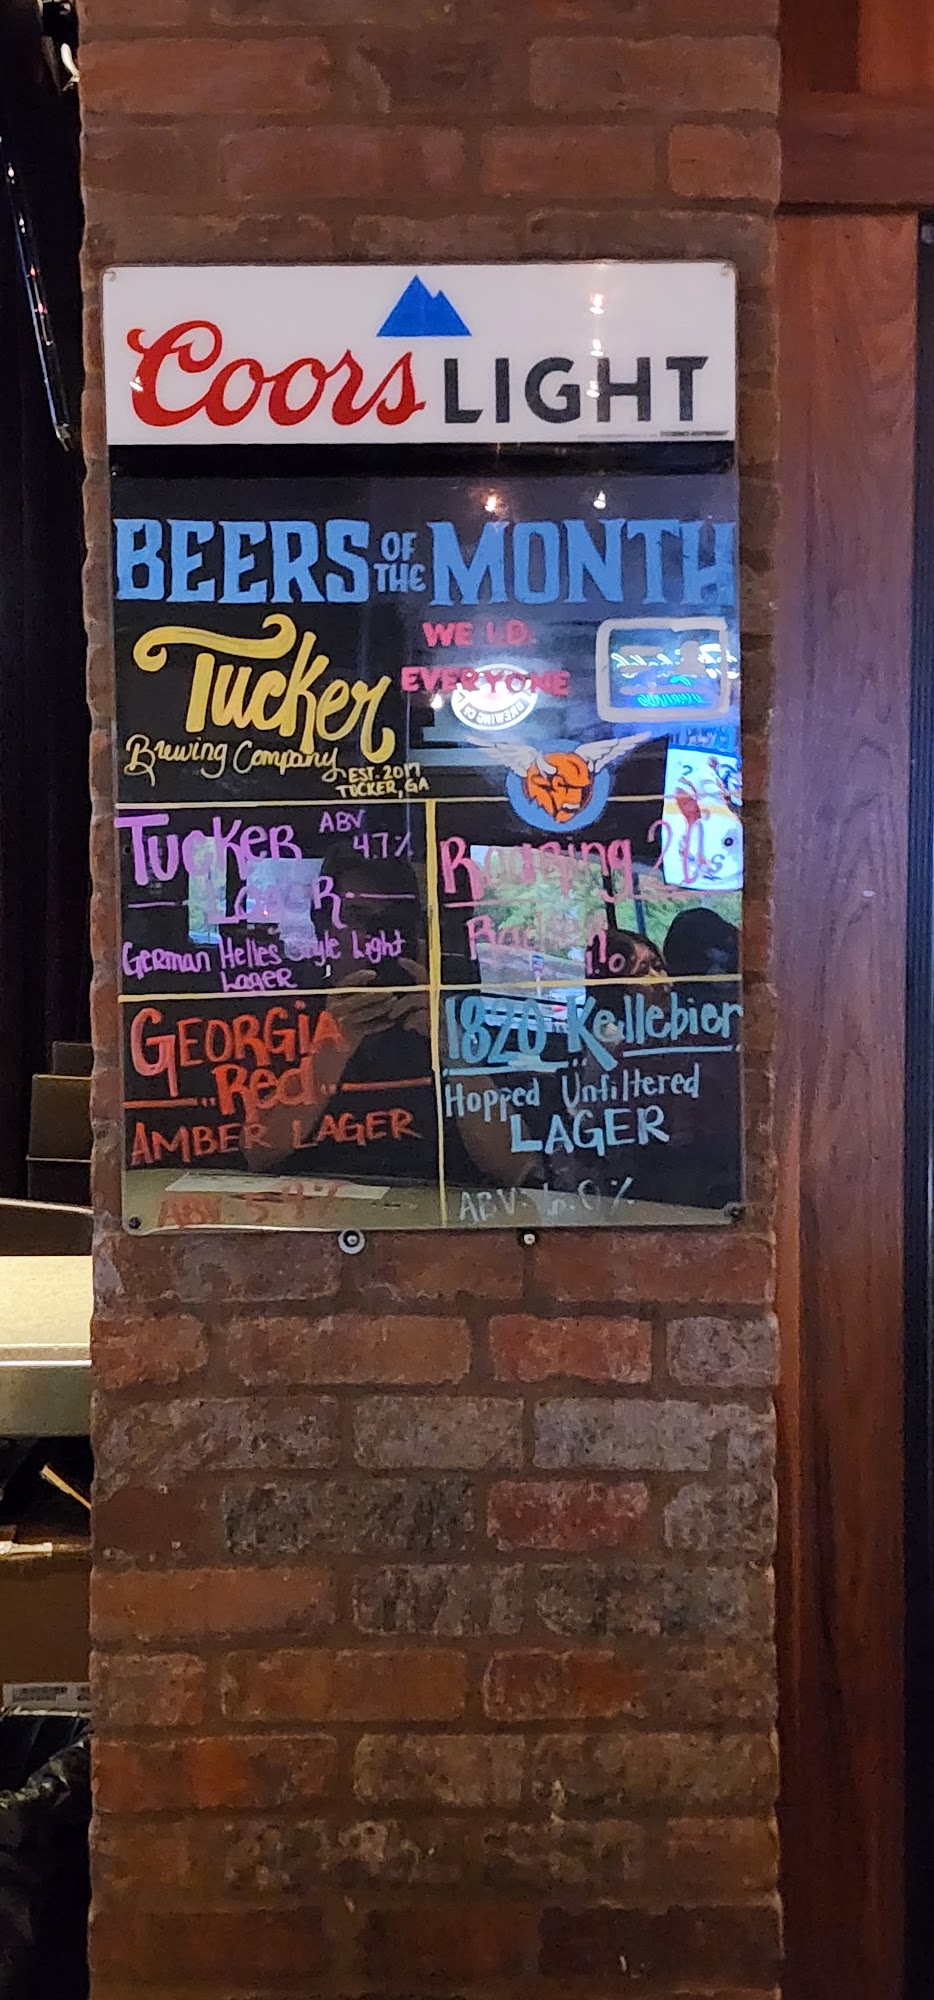 Coors LIGHT
BEERS OF THE MONTH
WE I.D.
EVERYONE
Tucker
Brewing Company
EST. 2017
TUCKER, GA
TUCKER ABV
4.7%
LAGER
German Helles Style Light
LAGER
Roaring 20s
GEORGIA
Red
AMBER LAGER
ABV
1820 Kellebier
Hopped Unfiltered
LAGER
ABV. 6.0%